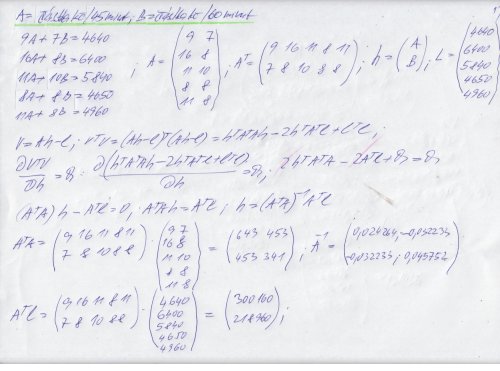 A = /45 minut, B = /60 minut
9A + 7B = 4640
16A + 8B = 6400
11A + 10B = 5840
8A + 8B = 4650
11A + 8B = 4960
; A = (9 7
16 8
11 10
8 8
11 8) ; Aᵀ = (9 16 11 8 11
7 8 10 8 8) ; h = (A
B) ; L = (4640
6400
5840
4650
4960)
V = Ah - l ; VᵀV = (Ah-l)ᵀ(Ah-l) = hᵀAᵀAh - 2hᵀAᵀl + lᵀl ;
∂VᵀV/∂h = 0 ; ∂(hᵀAᵀAh - 2hᵀAᵀl + lᵀl)/∂h = 0 ; 2hᵀAᵀA - 2Aᵀl + 0 = 0
(AᵀA) h - Aᵀl = 0 ; AᵀAh = Aᵀl ; h = (AᵀA)⁻¹ Aᵀl
AᵀA = (9 16 11 8 11
7 8 10 8 8) · (9 7
16 8
11 10
8 8
11 8) = (643 453
453 341) ; A⁻¹ = (0,024264 ; -0,032233
-0,032233 ; 0,045752)
Aᵀl = (9 16 11 8 11
7 8 10 8 8) · (4640
6400
5840
4650
4960) = (300160
218960) ;